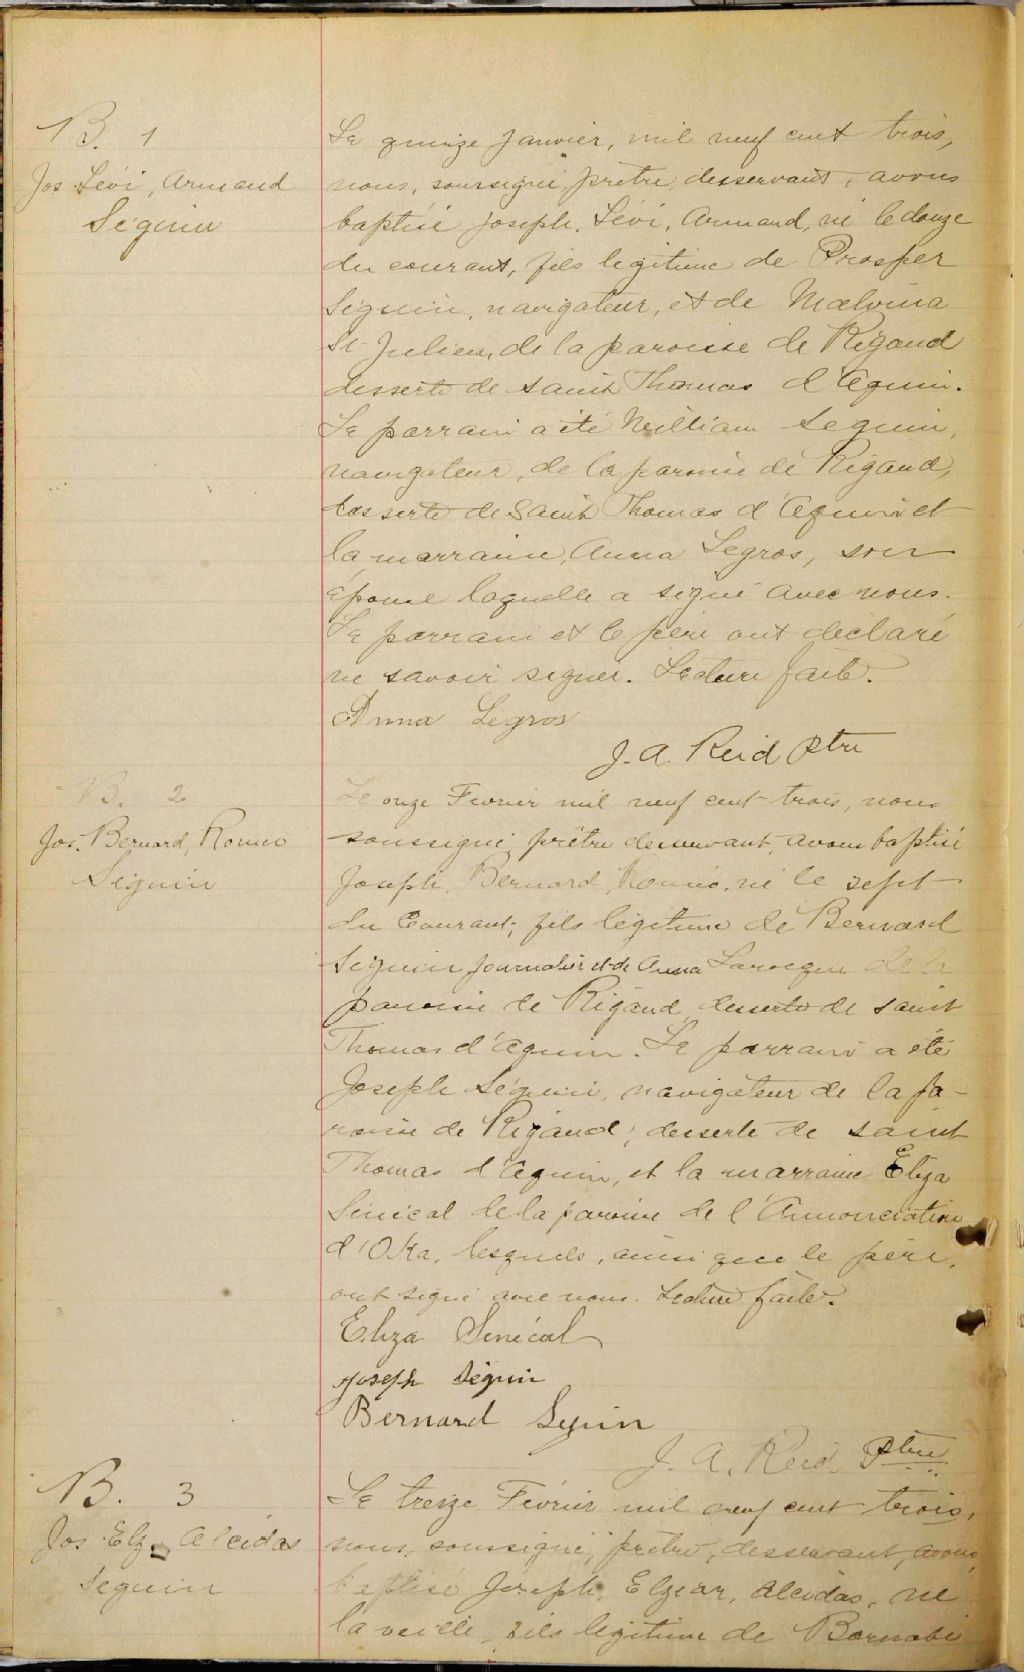 B. 1
Jos. Lévi, Armand
Séguin
Le quinze Janvier, mil neuf cent trois,
nous, soussigné, prêtre desservant, avons
baptisé Joseph, Lévi, Armand, né le douze
du courant, fils légitime de Prosper
Séguin, navigateur, et de Malvina
St Julien, de la paroisse de Rigaud
desserte de saint Thomas d'Aquin.
Le parrain a été William Séguin,
navigateur, de la paroisse de Rigaud,
desserte de Saint Thomas d'Aquin et
la marraine, Anna Legros, son
épouse laquelle a signé avec nous.
Le parrain et le père ont déclaré
ne savoir signer. Lecture faite.
Anna Legros
J. A. Reid Ptre
B. 2
Jos. Bernard, Romeo
Séguin
Le onze Fevrier mil neuf cent trois, nous
soussigné, prêtre desservant, avons baptisé
Joseph, Bernard, Roméo, né le sept
du Courant; fils légitime de Bernard
Séguin, journalier et de Anna Larocque de la
paroisse de Rigaud, desserte de saint
Thomas d'Aquin. Le parrain a été
Joseph Séguin, navigateur de la pa-
roisse de Rigaud, desserte de saint
Thomas d'Aquin, et la marraine Eliza
Sénécal de la paroisse de l'Annonciation
d'Oka, lesquels, ainsi que le père,
ont signé avec nous. Lecture faite.
Eliza Senécal
Joseph Séguin
Bernard Seguin
J. A. Reid, Ptre
B. 3
Jos. Elz. Alcidas
Seguin
Le treize Février mil neuf cent trois,
nous, soussigné, prêtre, desservant, avons
baptisé Joseph, Elzear, Alcidas, né
la veille, fils légitime de Barnabé